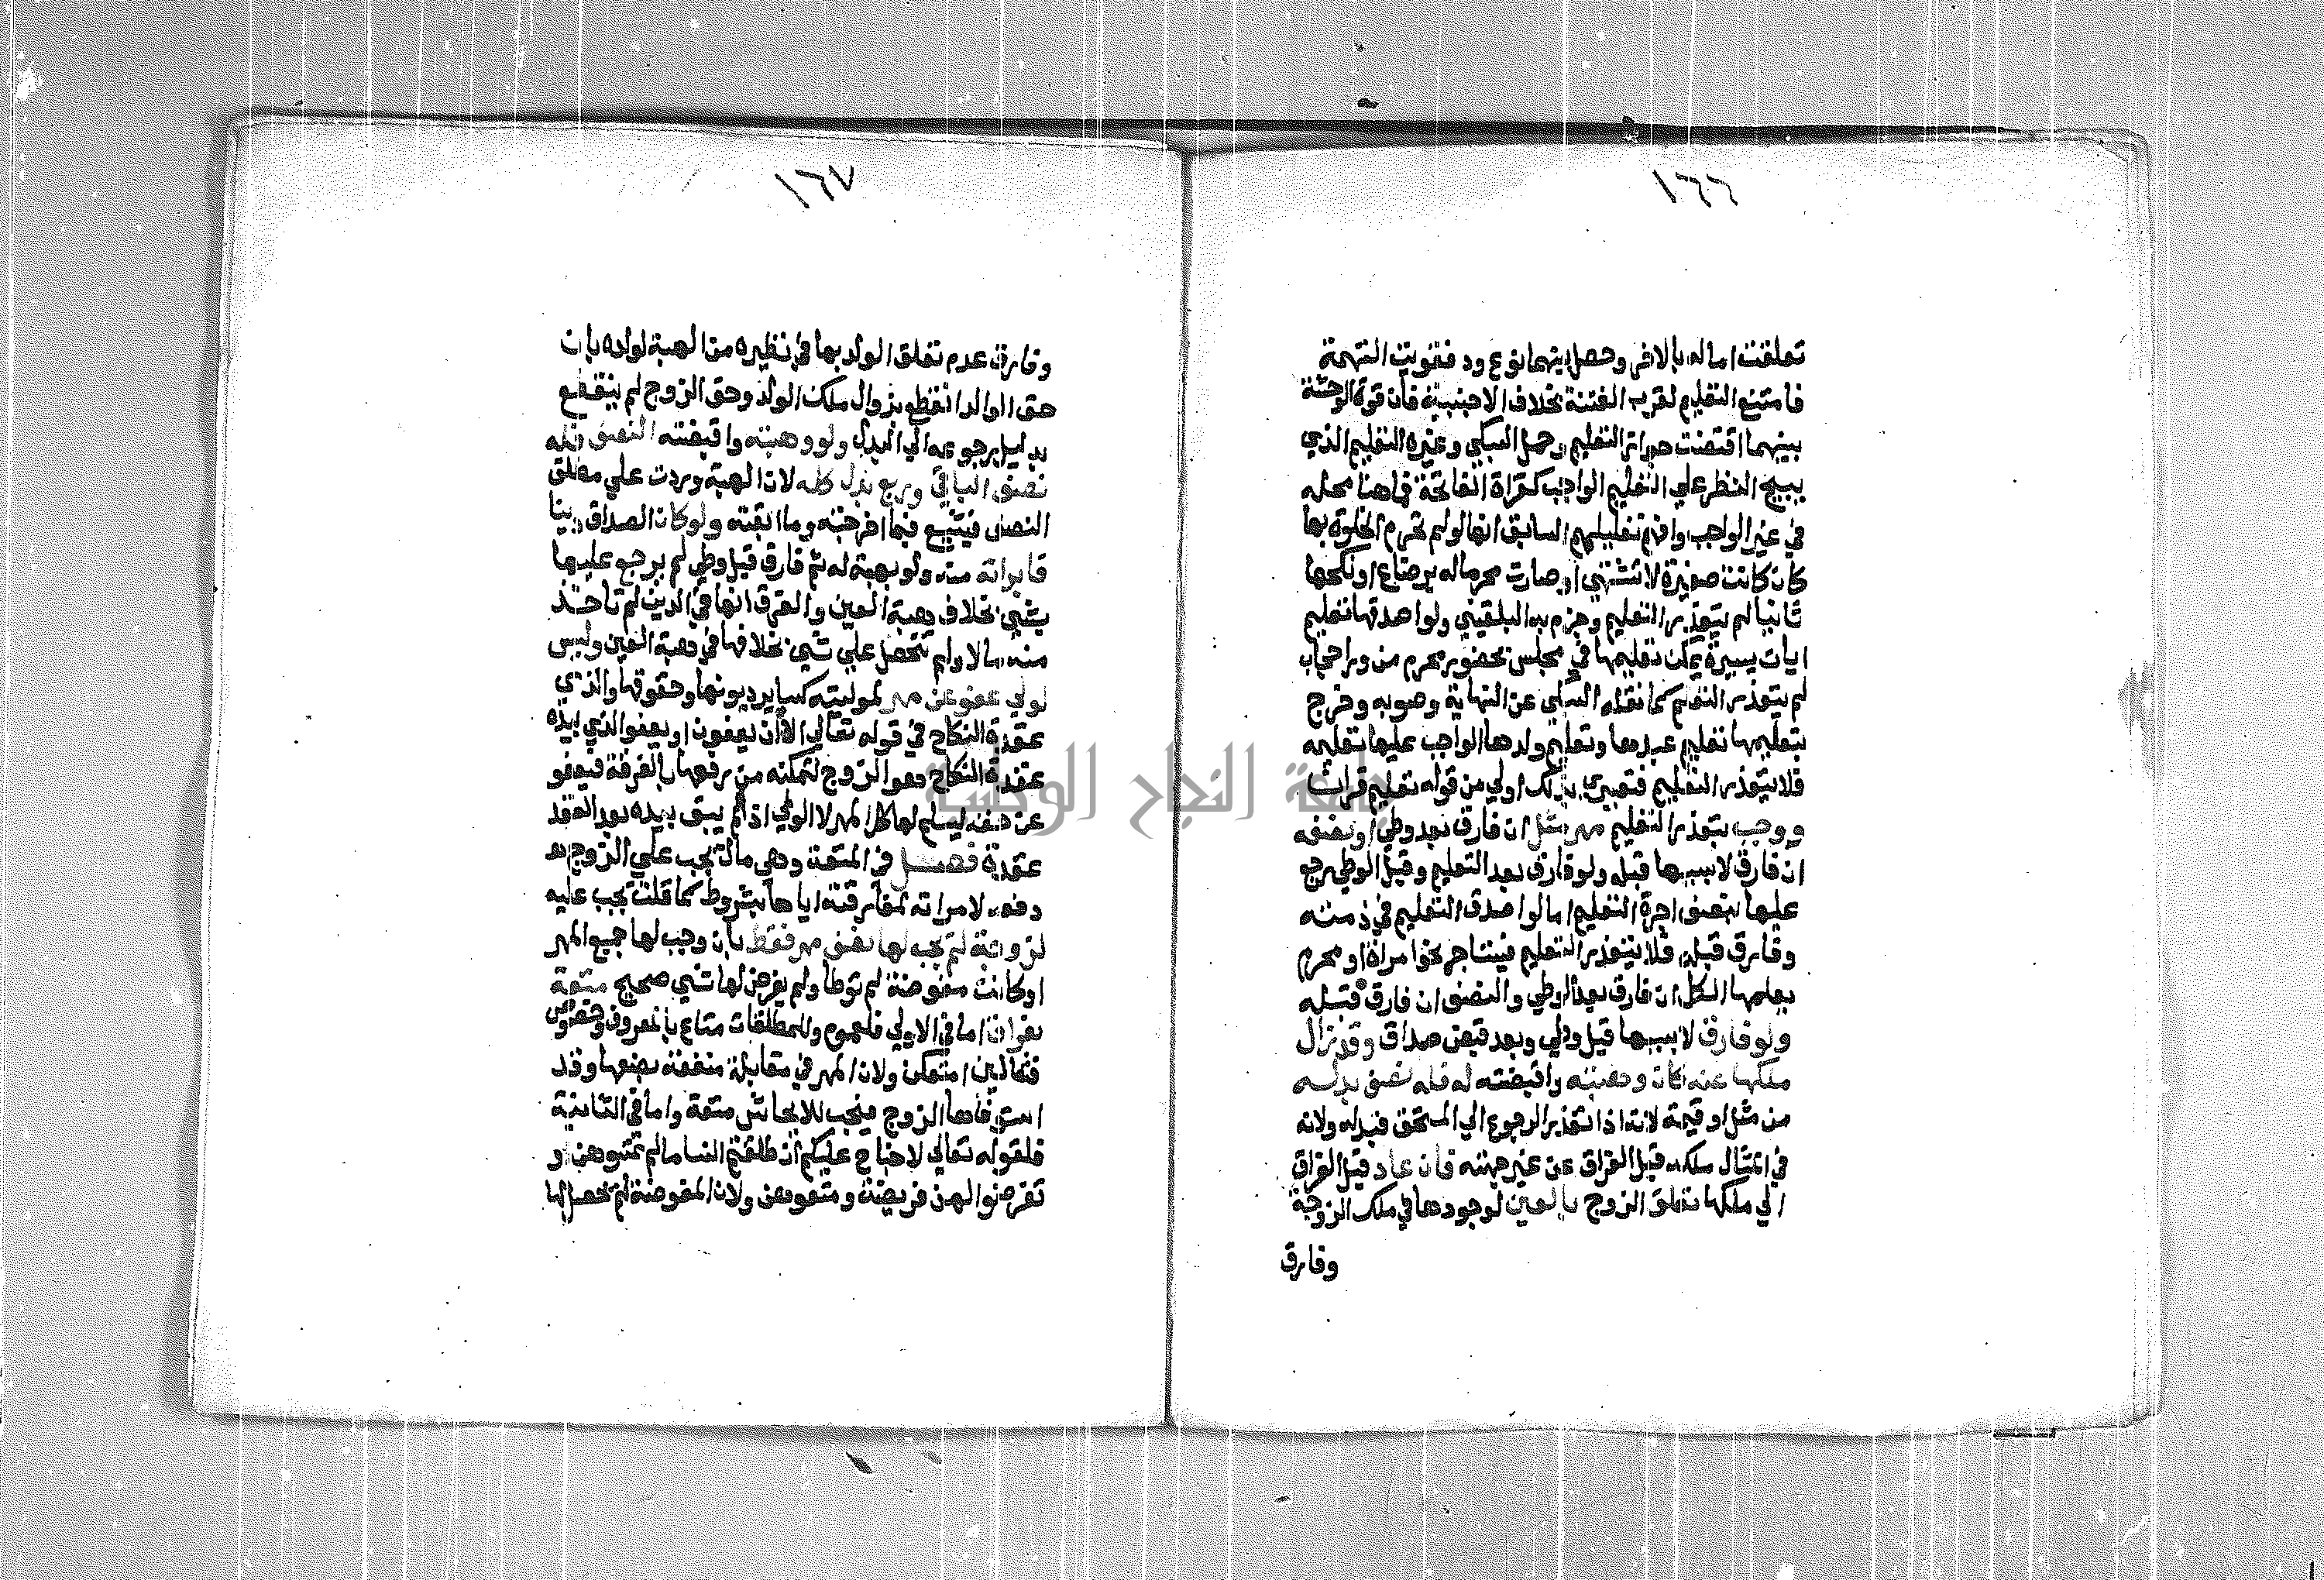 ١٦٦
تعلقت اماله بالاخر وحصل بينهما نوع ود فقويت التهمة
فامتنع التعليم لقرب الفتنة بخلاف الاجنبية فان قوة الوحشة
بينهما اقتضت جواز التعليم وحمل السبكي وغيره التعليم الذي
يبيح النظر علي التعليم الواجب كقراة الفاتحة فما هنا محله
في غير الواجب وافهم تعليلهم السابق انها لو لم تحرم الخلوة بها
كان كانت صغيرة لا تشتهي او صارت محرما له برضاع او نكحها
ثانيا لم يتعذر التعليم وجزم به البلقيني ولو اصدقها تعليم
ايات يسيرة يمكن تعليمها في مجلس بحضور محرم من ورا حجاب
لم يتعذر التعليم كما نقله السبكي عن النهاية وصوبه وخرج
بتعليمها تعليم عبدها وتعليم ولدها الواجب عليها تعليمه
فلا يتعذر التعليم فتعبيري بذلك اولي من قوله تعليم قران
ووجب بتعذر التعليم مهر مثل ان فارق بعد وطي او نصفه
ان فارق لا بسببها قبله ولو فارق بعد التعليم وقبل الوطي رجع
عليها بنصف اجرة التعليم اما لو اصدق التعليم في ذمته
وفارق قبله فلا يتعذر التعليم فيستاجر نحو امراة او محرم
يعلمها الكل ان فارق بعد الوطي والنصف ان فارق قبله
ولو فارق لا بسببها قبل وطي وبعد قبض صداق وقد زال
ملكها عنه كان وهبته واقبضته له فله نصف بدله
من مثل او قيمة لانه اذا تعذر الرجوع الي المستحق فبدله ولانه
في المثال ملكه قبل الفراق عن غير جهته فان عاد قبل الفراق
الي ملكها تعلق الزوج بالعين لوجودها في ملك الزوجة
وفارق
١٦٧
وفارق عدم تعلق الوالد بها في نظيره من الهبة لولده بان
حق الوالد انقطع بزوال ملك الولد وحق الزوج لم ينقطع
بدليل رجوعه الي البدل ولو وهبته واقبضته النصف فله
نصف الباقي وربع بدل كله لان الهبة وردت علي مطلق
النصف فيشيع فيما اخرجته وما ابقته ولو كان الصداق دينا
فابراته منه ولو بهبته له ثم فارق قبل وطي لم يرجع عليها
بشي بخلاف هبة العين والفرق انها في الدين لم تاخذ
منه مالا ولم تتحصل علي شي بخلافها في هبة العين وليس
لولي عفو عن مهر لموليته كساير ديونها وحقوقها والذي
عقدة النكاح في قوله تعالي الا ان يعفون او يعفو الذي بيده
عقدة النكاح هو الزوج لتمكنه من رفعها بالفرقة فيعفو
عن حقه ليسلم لها كل المهر لا الولي اذ لم يبق بيده بعد العقد
عقدة فصل في المتعة وهي مال يجب علي الزوج
دفعه لامراته لمفارقته اياها بشروط كما قلت يجب عليه
لزوجة لم يجب لها نصف مهر فقط بان وجب لها جميع المهر
او كانت مفوضة لم توطا ولم يفرض لها شي صحيح متعة
بفراق اما في الاولي فلعموم وللمطلقات متاع بالمعروف وخصوص
فتعالين امتعكن ولان المهر في مقابلة منفعة بضعها وقد
استوفاها الزوج فيجب للايحاش متعة واما في الثانية
فلقوله تعالي لا جناح عليكم ان طلقتم النسا ما لم تمسوهن او
تفرضوا لهن فريضة ومتعوهن ولان المفوضة لم يحصل لها
جامعة النجاح الوطنية